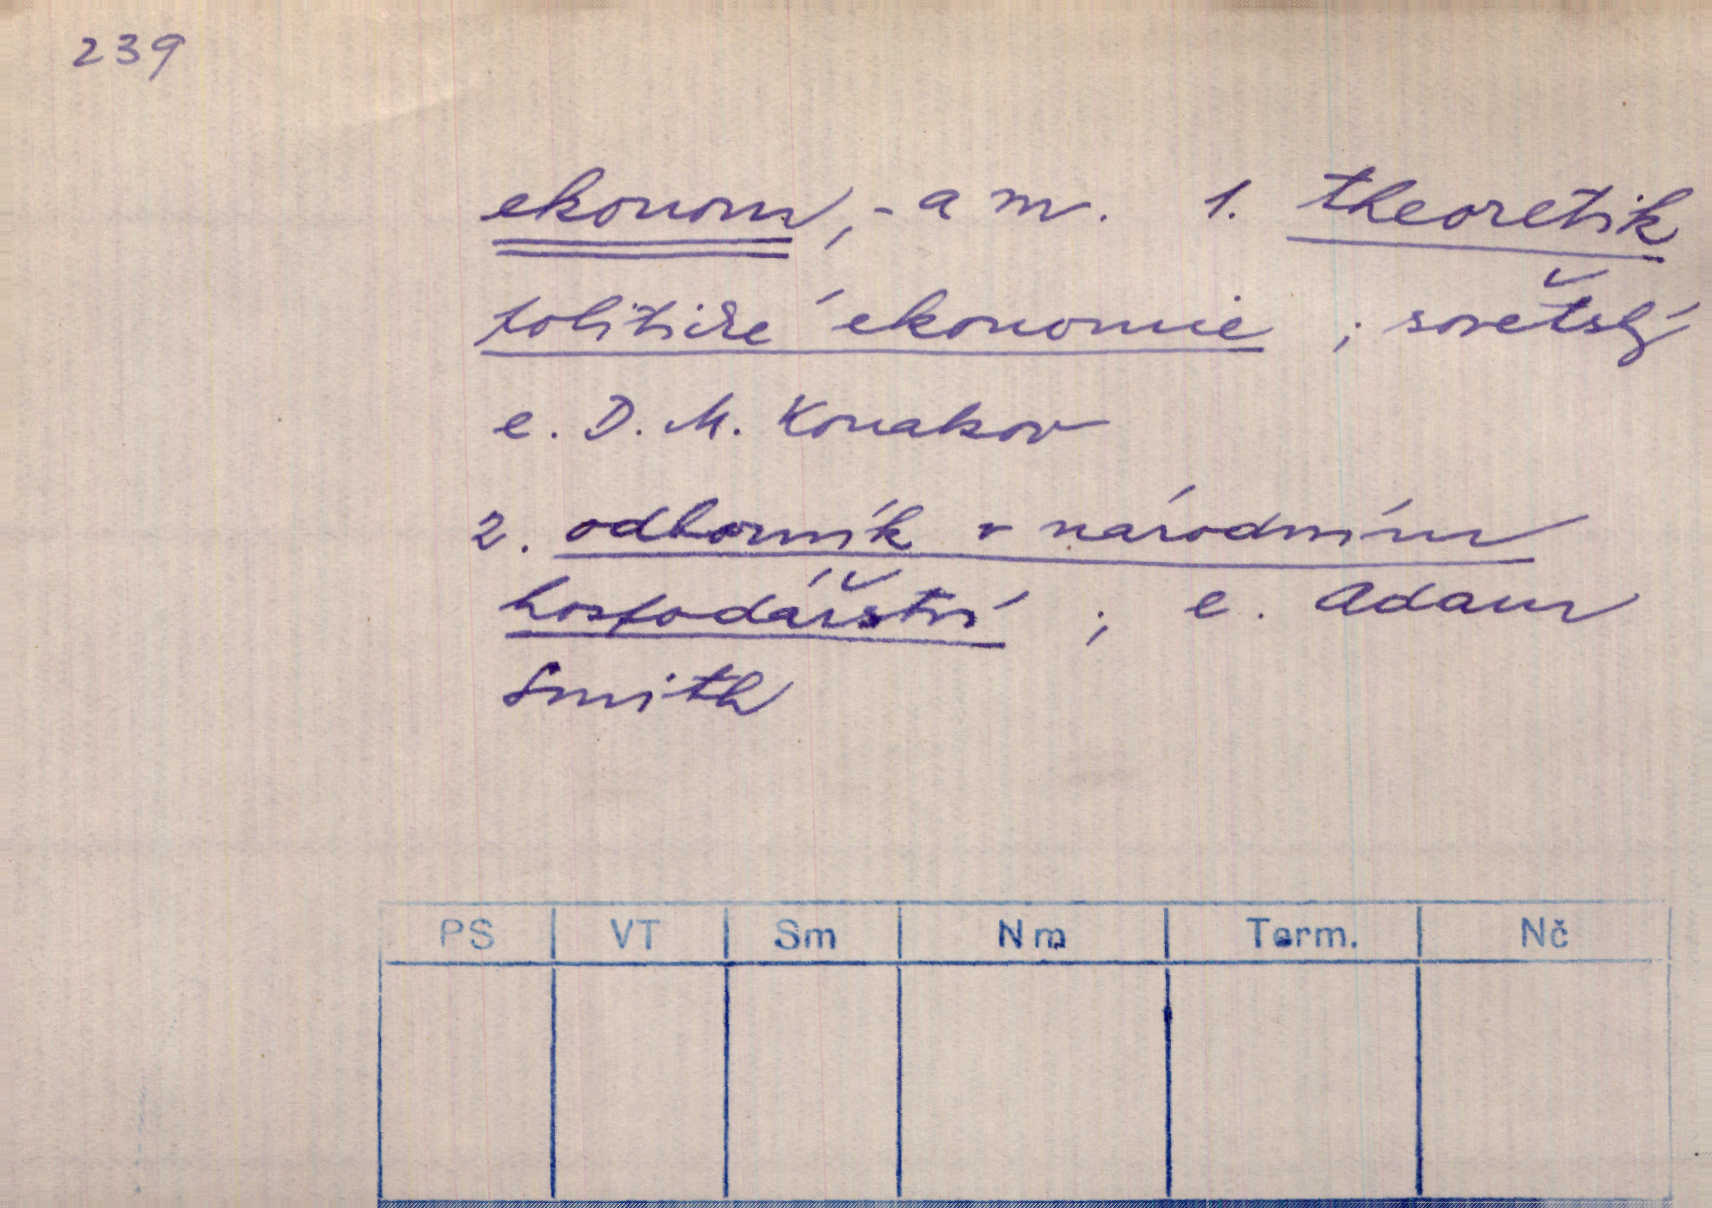 239
ekonom, -a m. 1. theoretik
politické ekonomie ; sovětský
e. D. M. Konakov
2. odborník v národním
hospodářství ; e. Adam
Smith
PS VT Sm Nm Term. Nč